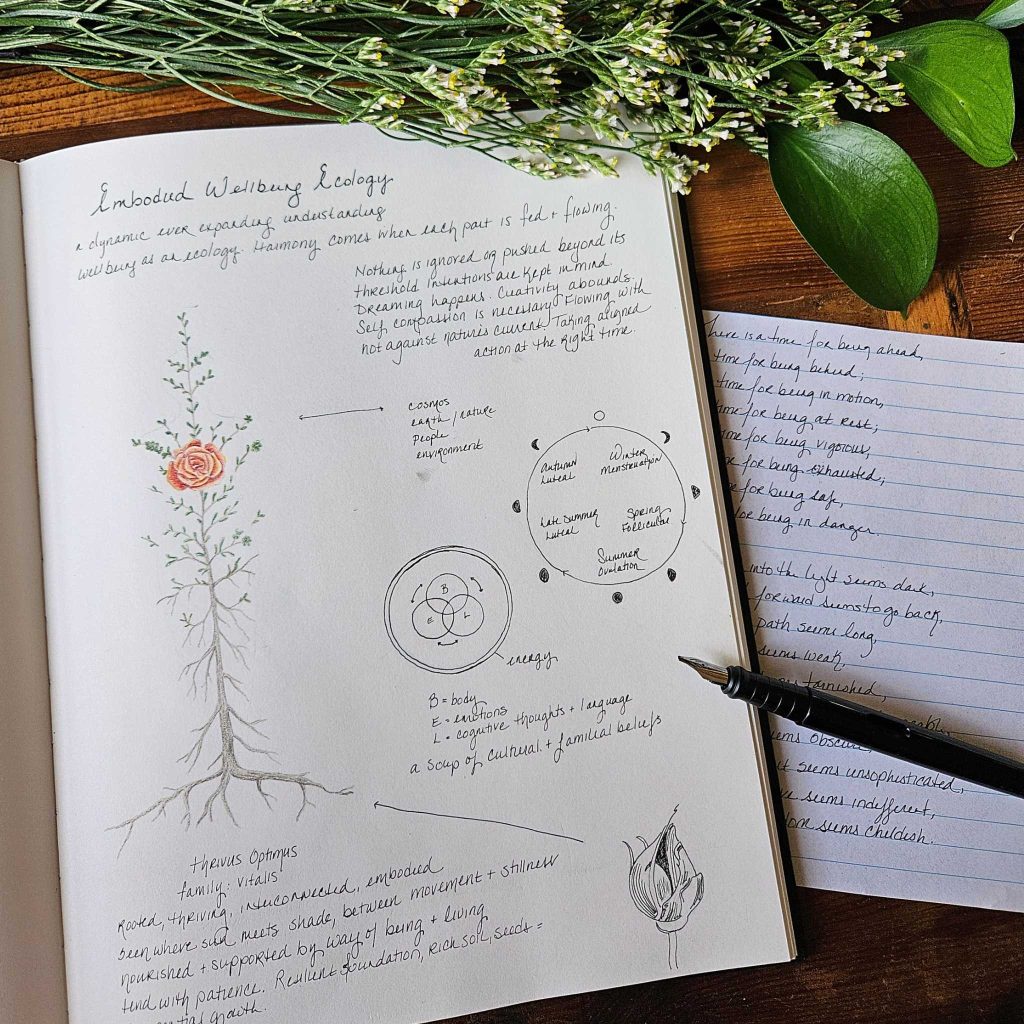 Embodied Wellbeing Ecology
a dynamic ever expanding understanding
wellbeing as an ecology. Harmony comes when each part is fed + flowing.
Nothing is ignored or pushed beyond its
threshold intentions are kept in mind.
Dreaming happens. Creativity abounds.
Self compassion is necessary. Flowing with
not against natures current. Taking aligned
action at the right time.
cosmos
earth / nature
people
environment
Autumn
Luteal
Winter
menstruation
Late Summer
Luteal
Spring
Follicular
Summer
Ovulation
B
E
L
energy
B = body
E = emotions
L = cognitive thoughts + language
a soup of cultural + familial beliefs
Thrivus Optimus
family: Vitalis
Rooted, thriving, interconnected, embodied
seen where sun meets shade, between movement + stillness
nourished + supported by way of being + living
tend with patience. Resilient foundation, rich soil, seeds =
growth.
There is a time for being ahead,
time for being behind;
time for being in motion,
time for being at rest;
time for being vigorous,
for being exhausted;
for being safe,
for being in danger.
into the light seems dark,
forward seems to go back,
path seems long,
seems weak,
tarnished,
seems obscure,
seems unsophisticated,
seems indifferent,
seems childish.